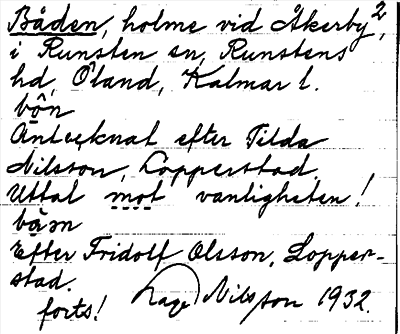 Båden, holme vid Åkerby²,
i Runsten sn, Runstens
hd, Öland, Kalmar l.
bôn
Antecknat efter Tilda
Nilsson, Lopperstad.
Uttal mot vanligheten!
Efter Fridolf Olsson, Lopper-
stad.
forts! Lage Nilsson 1932.